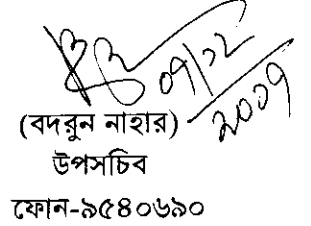 ০৭/১২
২০০৭
(বদরুন নাহার)
উপসচিব
ফোন-৯৫৪০৬৯০